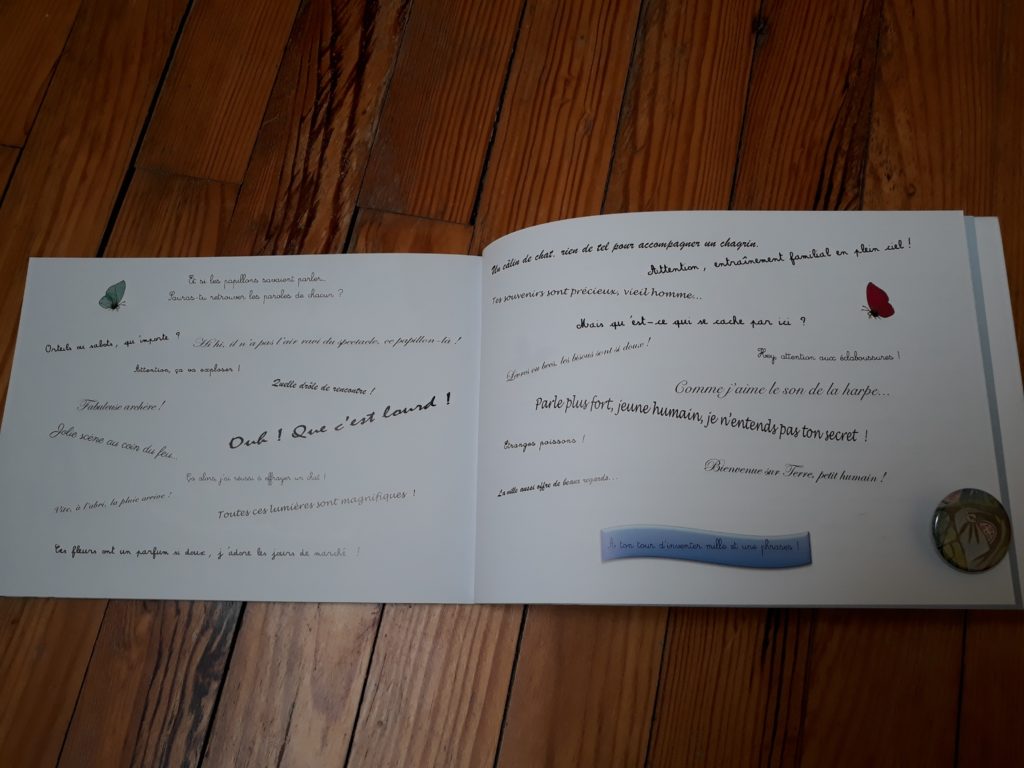 Et si les papillons savaient parler...
Pauras-tu retrouver les paroles de chacun ?
Orteils ou sabots, qu'importe ?
Hi hi, il n'a pas l'air ravi du spectacle, ce papillon-là !
Attention, ça va exploser !
Quelle drôle de rencontre !
Fabuleuse archère !
Ouh ! Que c'est lourd !
Jolie scène au coin du feu...
Ça alors, j'ai réussi à effrayer un chat !
Vite, à l'abri, la pluie arrive !
Toutes ces lumières sont magnifiques !
Ces fleurs ont un parfum si doux, j'adore les jours de marché !
Un câlin de chat, rien de tel pour accompagner un chagrin.
Attention, entraînement familial en plein ciel !
Tes souvenirs sont précieux, vieil homme...
Mais qu'est-ce qui se cache par ici ?
Lèvres ou becs, les bisous sont si doux !
Hey attention aux éclaboussures !
Comme j'aime le son de la harpe...
Parle plus fort, jeune humain, je n'entends pas ton secret !
Étranges poissons !
Bienvenue sur Terre, petit humain !
La ville aussi offre de beaux regards...
A ton tour d'inventer mille et une phrases !